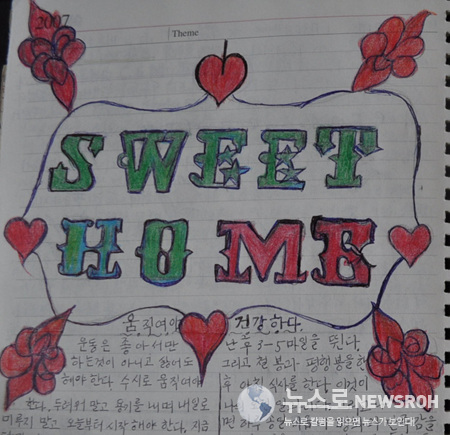 2007
Theme
SWEET
HOME
움직여야 건강하다.
운동은 좋아서만
하는것이 아니고 싫어도
해야 한다. 수시로 움직여야
한다. 두려워 말고 용기를 내며 내일로
미루지 말고 오늘부터 시작 해야 한다. 지금
난 주 3-5마일을 뛴다.
그리고 철봉과 평행봉을한
후 아침 식사를 한다.
뉴스로 NEWSROH
뉴스로 칼럼을 읽으면 뉴스가 보인다!